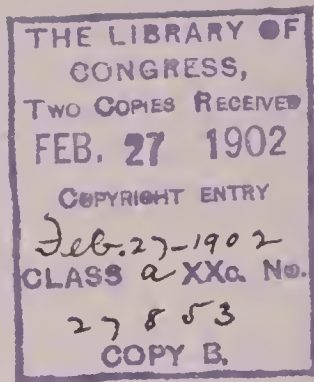 THE LIBRARY OF
CONGRESS,
TWO COPIES RECEIVED
FEB. 27 1902
COPYRIGHT ENTRY
Feb. 27-1902
CLASS a XXc. No.
27853
COPY B.